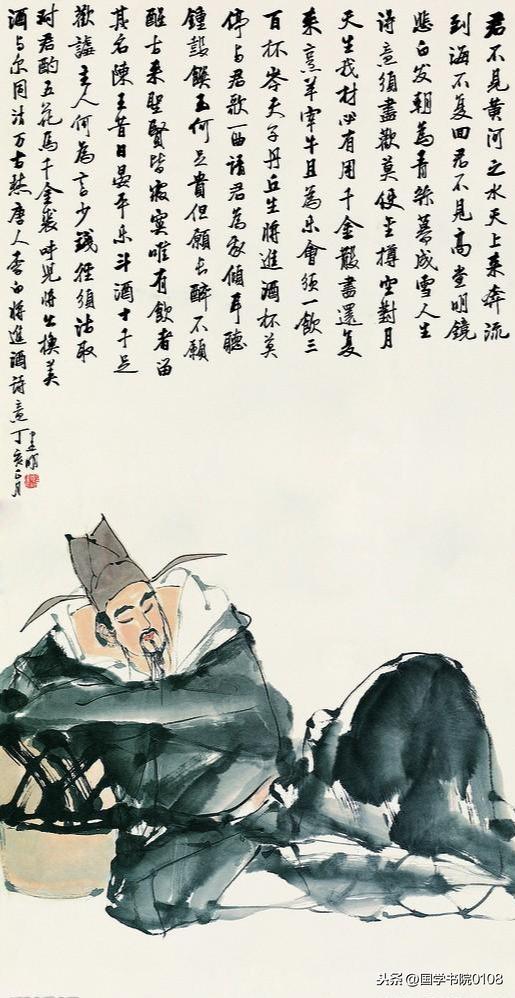 君不見黄河之水天上来奔流
到海不复回君不見高堂明鏡
悲白发朝為青絲暮成雪人生
诗意須盡歡莫使金樽空對月
天生我材必有用千金散盡還复
来烹羊宰牛且為乐會須一飲三
百杯岑夫子丹丘生將進酒杯莫
停与君歌一曲請君為我傾耳聽
鍾鼓饌玉何足貴但願长醉不願
醒古来聖賢皆寂寞唯有飲者留
其名陳王昔日宴平乐斗酒十千恣
歡謔主人何為言少錢径須沽取
对君酌五花馬千金裘呼兒將出換美
酒与尔同沽万古愁唐人李白將進酒诗意丁亥正月
头条 @国学书院0108